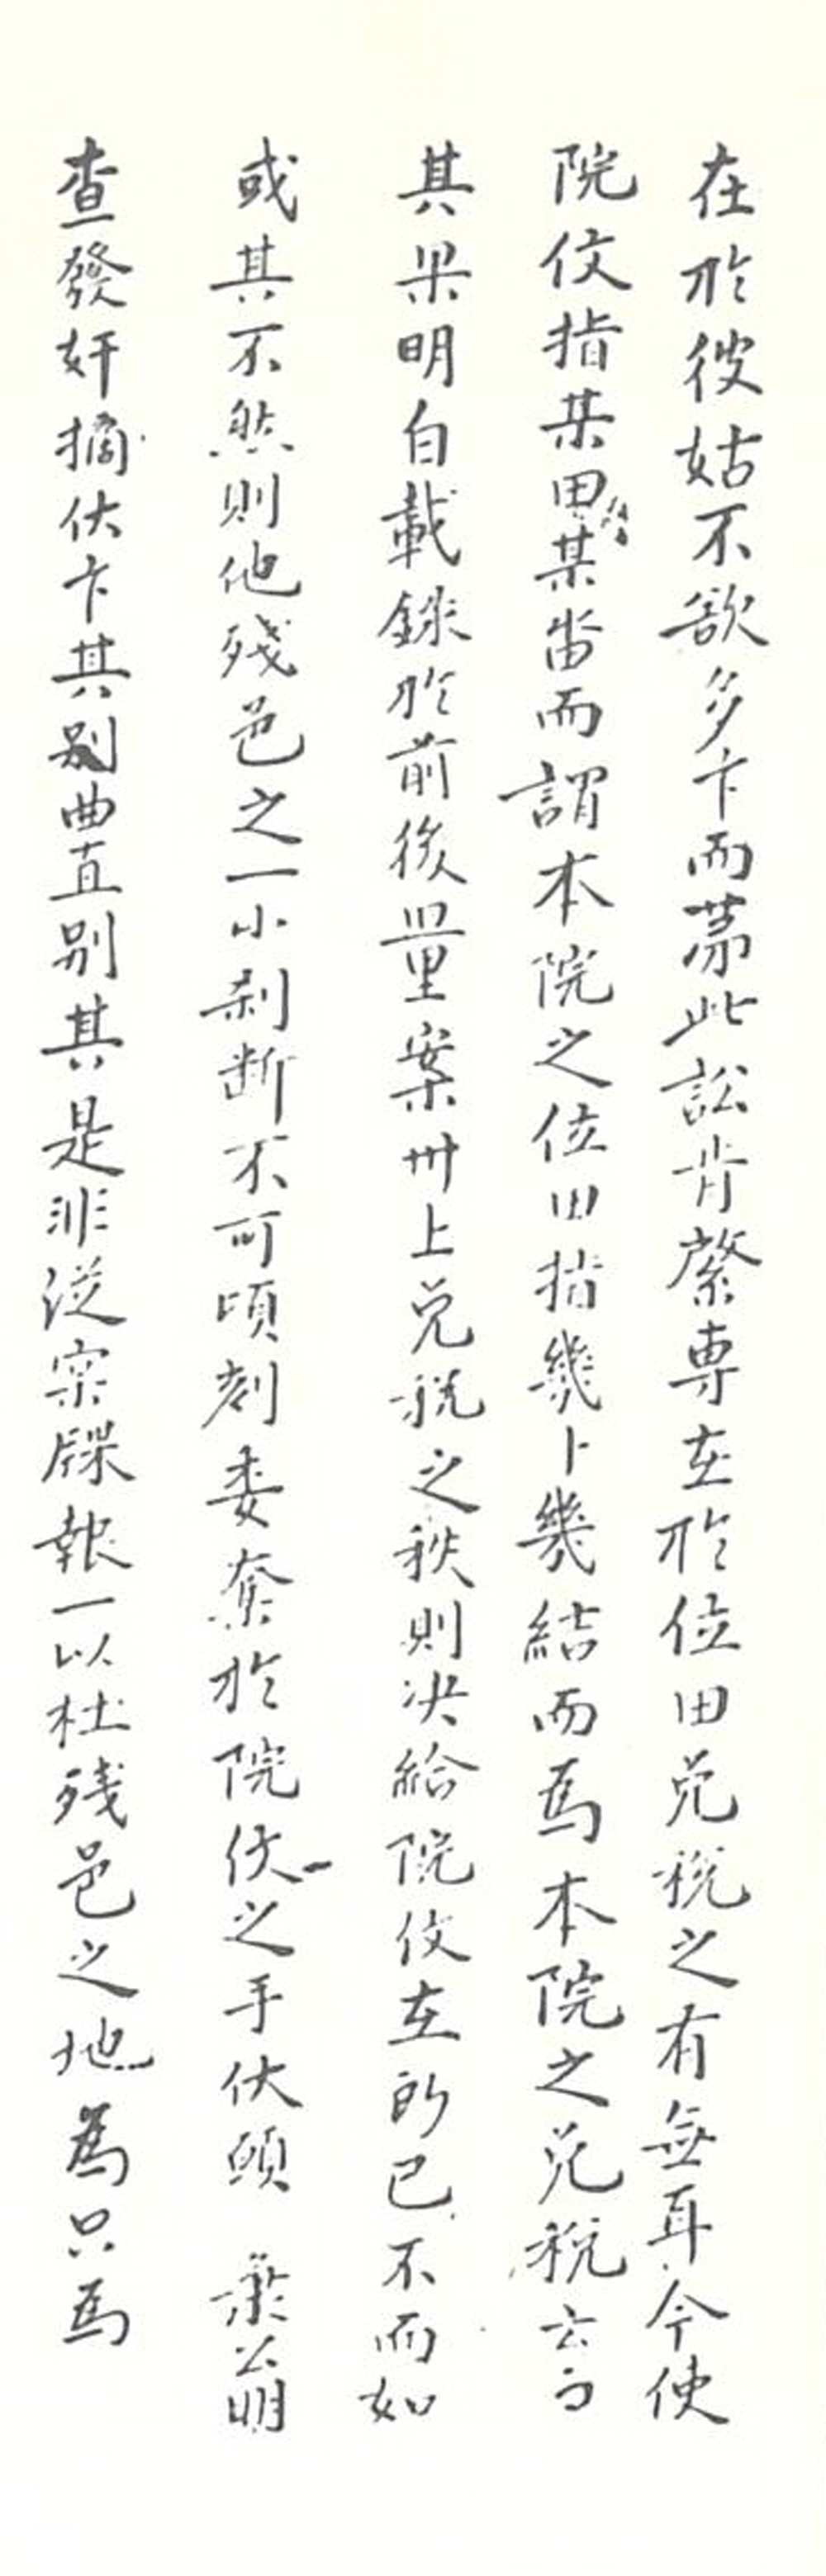 在於彼姑不欲多卞而苐此訟肯綮專在於位田免稅之有無耳今使
院伩指某田某畓而謂本院之位田指幾卜幾結而爲本院之免稅云云
其果明白載錄於前後量案卌上免稅之秩則決給院伩在所已不而如
或其不然則他殘邑之一小刹断不可頃刻委奪於院伩之手伏願 秉公明
查發奸摘伏卞其別曲直别其是非從实牒報一以杜残邑之地爲只爲